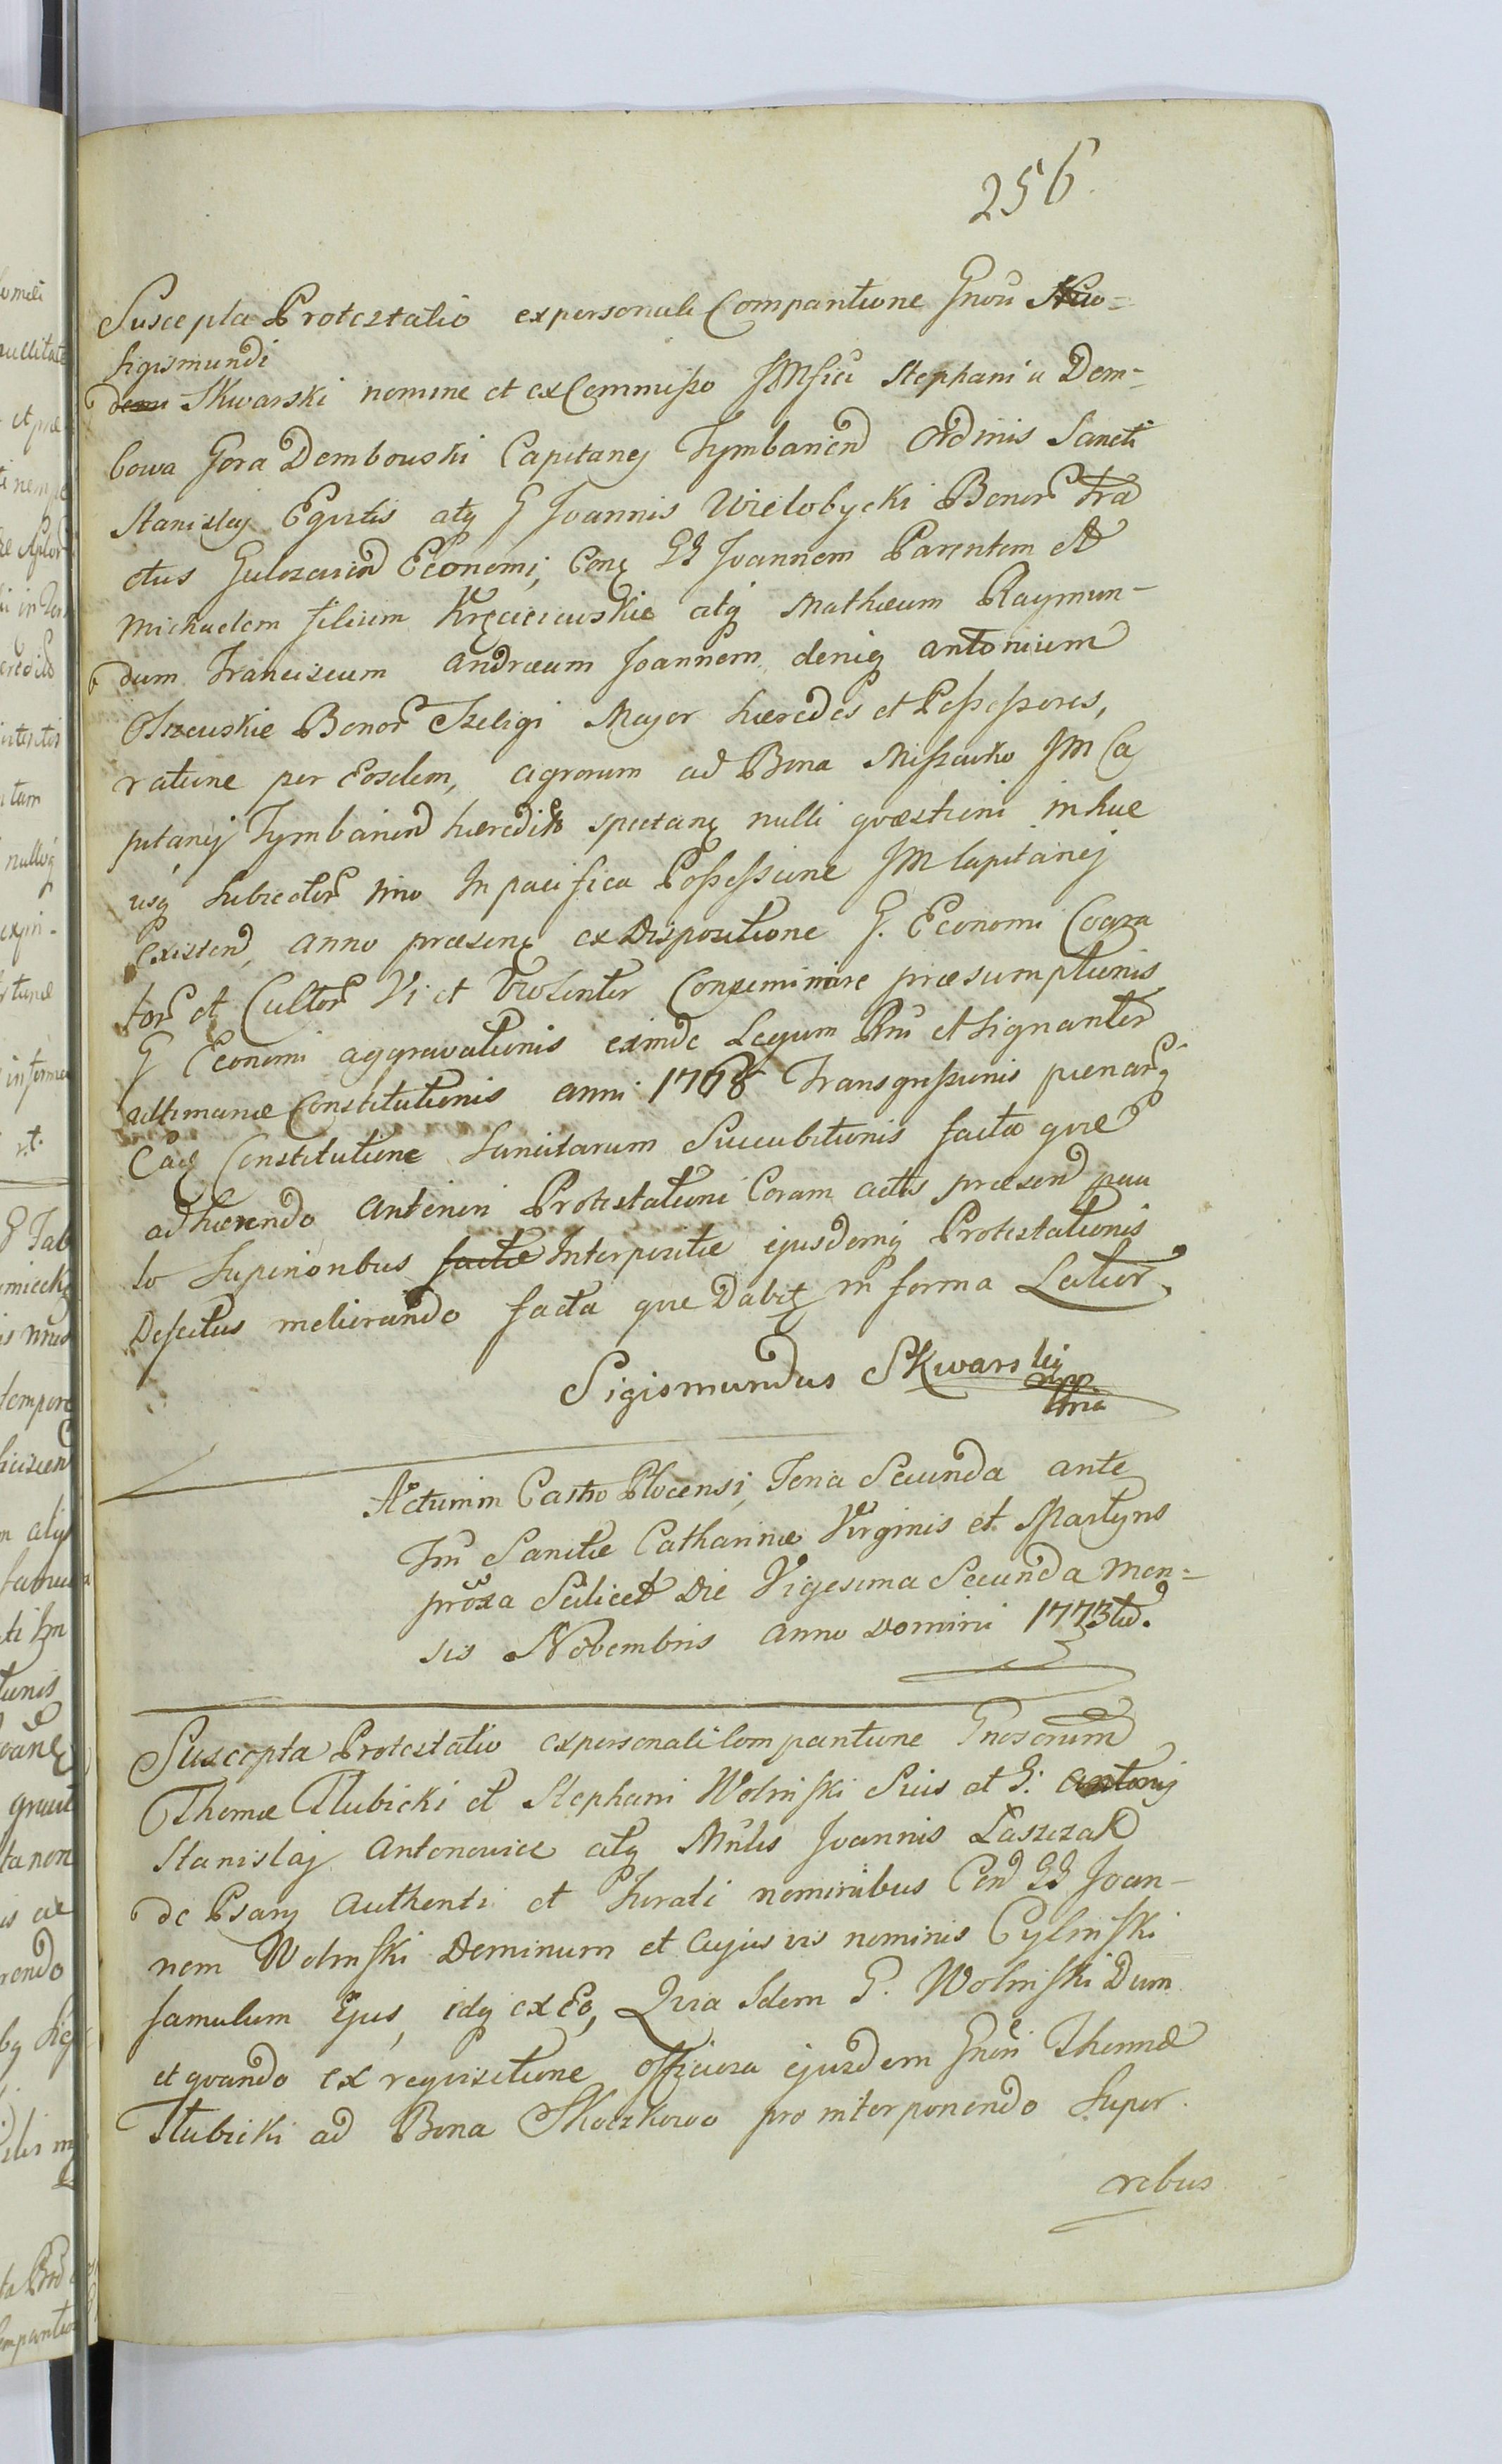 256.
Suscepta Protestatio ex personali Comparitione Gnosi
Sigismundi
Skwarski nomine et ex Commisso JMfici Stephani a Dem-
bowa Gora Dembowski Capitanej Tymbarien Ordinis Sancti
Stanislaj Equitis atq G Joannis Wielobycki Bonor Tra
ctus Gulczevien Economi, Con GG Joannem Parentem et
Michaelem filium Kręciewskie atq Mathæum Raymun-
dum Franciscum Andræum Joannem deniq Antonium
Olszewskie Bonor Szeligi Major hæredes et Possessores,
ratione per Eosdem, agrorum ad Bona Miszewko JM Ca
pitanej Tymbarien hæredit spectan nulli qvæstioni in huc
usq Subjector imo In pacifica Possessione JM Capitanej
Existen, anno præsen ex Dispositione G. Economi Coara
tor et Cultor Vi et Violenter Conseminare præsumptionis
G Economi aggravationis exinde Legum Rni et Signanter
ultimariæ Constitutionis anni 1768 Transgressionis pænarq
Eaq Constitutione Sancitarum Succubitionis facta qvæ
adhærendo Anteriori Protestationi Coram actis præsen pau
lo Superioribus factæ Interpositæ ejusdemq Protestationis
Defectus meliorando facta qvæ Dabit in forma Latior.
Sigismundus Skwarski
mpp
Actum in Castro Plocensi, Feria Secunda ante
Fm Sanctæ Catharinæ Virginis et Martyris
proxa Scilicet Die Vigesima Secunda Men-
sis Novembris Anno Domini 1773tio.
Suscepta Protestatio ex personali Comparitione Gnosorum
Thomæ Tłubicki et Stephani Wolinski Suis et G. Antonij
Stanislaj Antonowicz atq Mnlis Joannis Laszczak
de Psary Authenti et Jurati nominibus Con GG Joan-
nem Wolinski Dominum et Cujusvis nominis Cylinski
famulum Ejus, idq ex Eo, Qvia Idem G. Wolinski Dum
et qvando ex reqvisitione officiosa ejusdem Gnosi Thomæ
Tłubicki ad Bona Skoczkowo pro interponendo Super
rebus